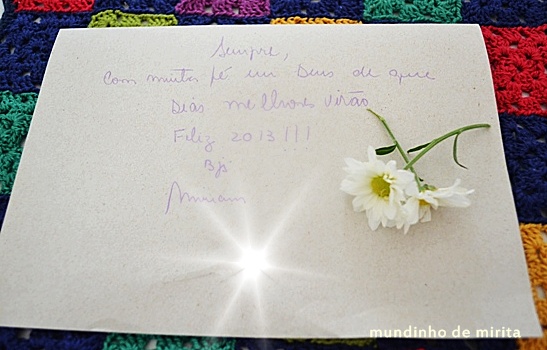 Sempre,
Com muita fé em Deus de que
Dias melhores virão.
Feliz 2013!!!
Bjs
Miriam
mundinho de mirita